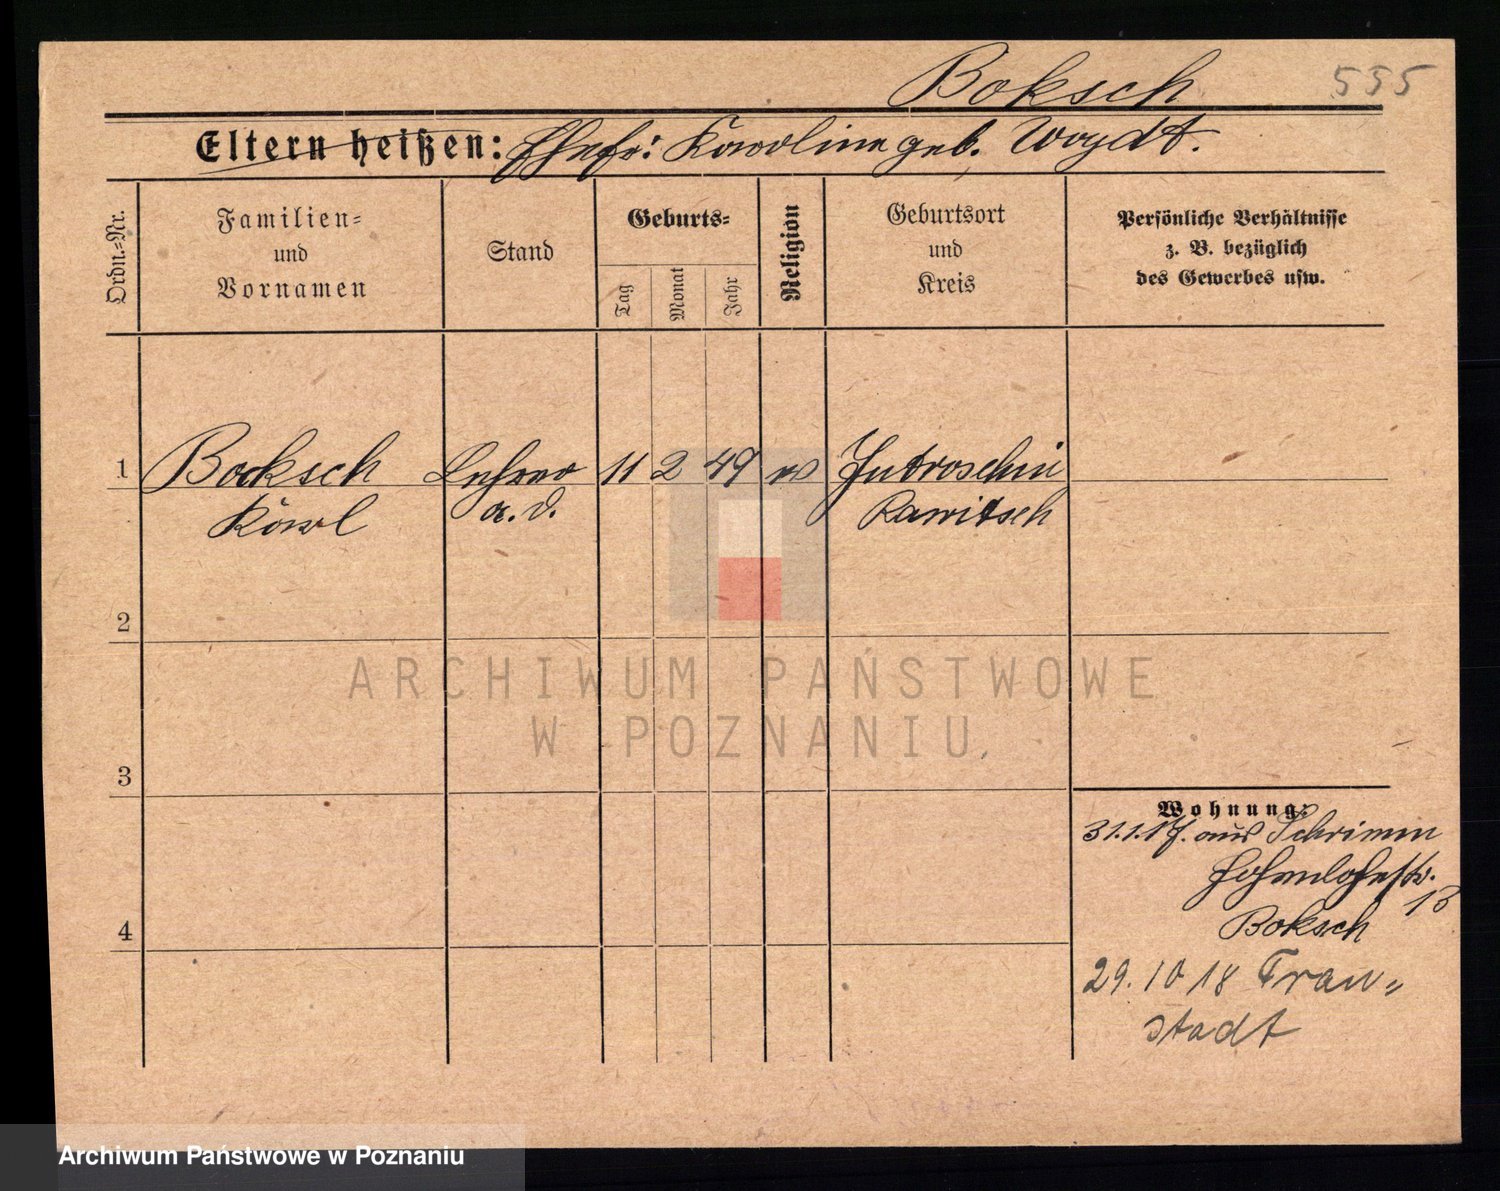 Boksch
555
Eltern heißen: Ehefr: Karoline geb. Woydt.
Ordn.-Nr.
Familien-
und
Vornamen
Stand
Geburts-
Tag
Monat
Jahr
Religion
Geburtsort
und
Kreis
Persönliche Verhältnisse
z. B. bezüglich
des Gewerbes usw.
1 Bocksch Lehrer 11 2 49 ev Jutroschin
Karl a. d. Rawitsch
2
3
4
Wohnung:
31.1.17. aus Schrimm
Hohenlohestr.
13
Boksch
29. 10 18 Frau-
stadt
ARCHIWUM PAŃSTWOWE
W POZNANIU
Archiwum Państwowe w Poznaniu